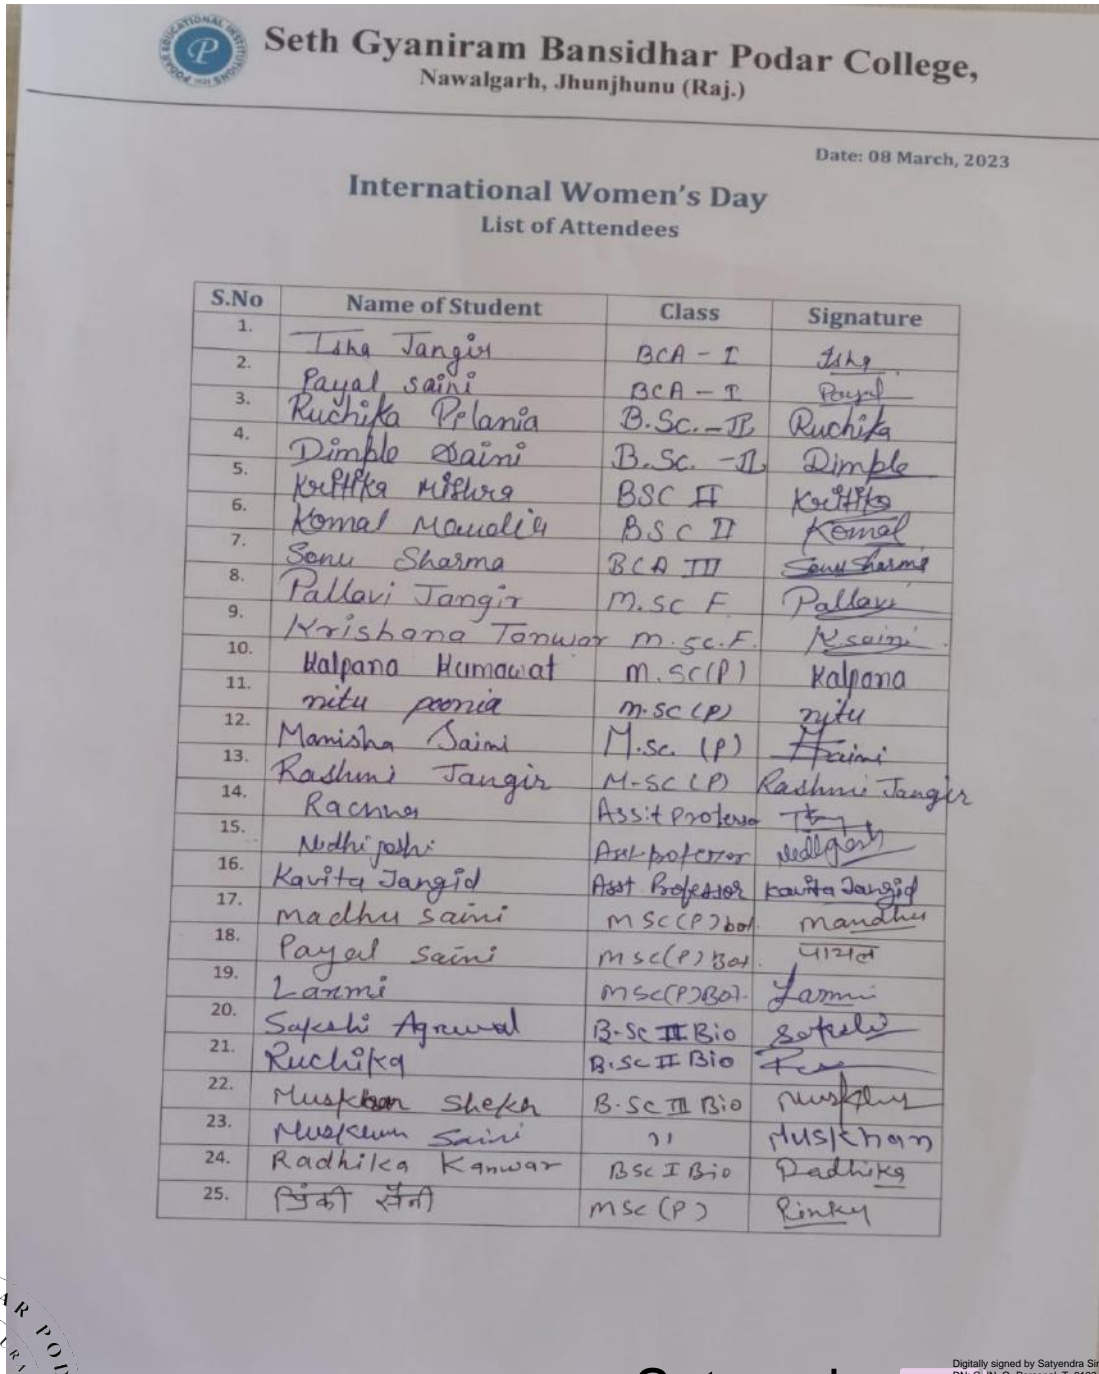 Seth Gyaniram Bansidhar Podar College,
Nawalgarh, Jhunjhunu (Raj.)
Date: 08 March, 2023
International Women's Day
List of Attendees
S.No Name of Student Class Signature
1. Isha Jangir BCA - I Isha
2. Payal saini BCA - I Payal
3. Ruchika Pilania B.Sc.-II Ruchika
4. Dimple Saini B.Sc. -II Dimple
5. Kritika Mishra BSC II Kritika
6. Komal BSC II Komal
7. Sonu Sharma BCA III Sonu Sharma
8. Pallavi Jangir M.SC F. Pallavi
9. Krishana Tanwar m.sc.F. Ksaini
10. Kalpana Kumawat M.SC(P) Kalpana
11. nitu poonia m.sc (P) nitu
12. Manisha Saini M.sc. (P)
13. Rashmi Jangir M-SC (P) Rashmi Jangir
14. Rachna Assit Professor
15. Nidhi joshi
16. Kavita Jangid Asst. Professor Kavita Jangid
17. madhu saini MSC(P) bot. mandhu
18. Payal Saini MSC(P) Bot. पायल
19. Laxmi MSC(P) Bot. Laxmi
20. Sakshi Agrawal B.Sc III Bio Sakshi
21. Ruchika B.Sc II Bio
22. Muskhan Shekh B.Sc III Bio
23. Saini 11 Muskhan
24. Radhika Kanwar BSc I Bio Radhika
25. पिंकी सैनी MSC (P) Pinky
AR POD
Digitally signed by Satyendra